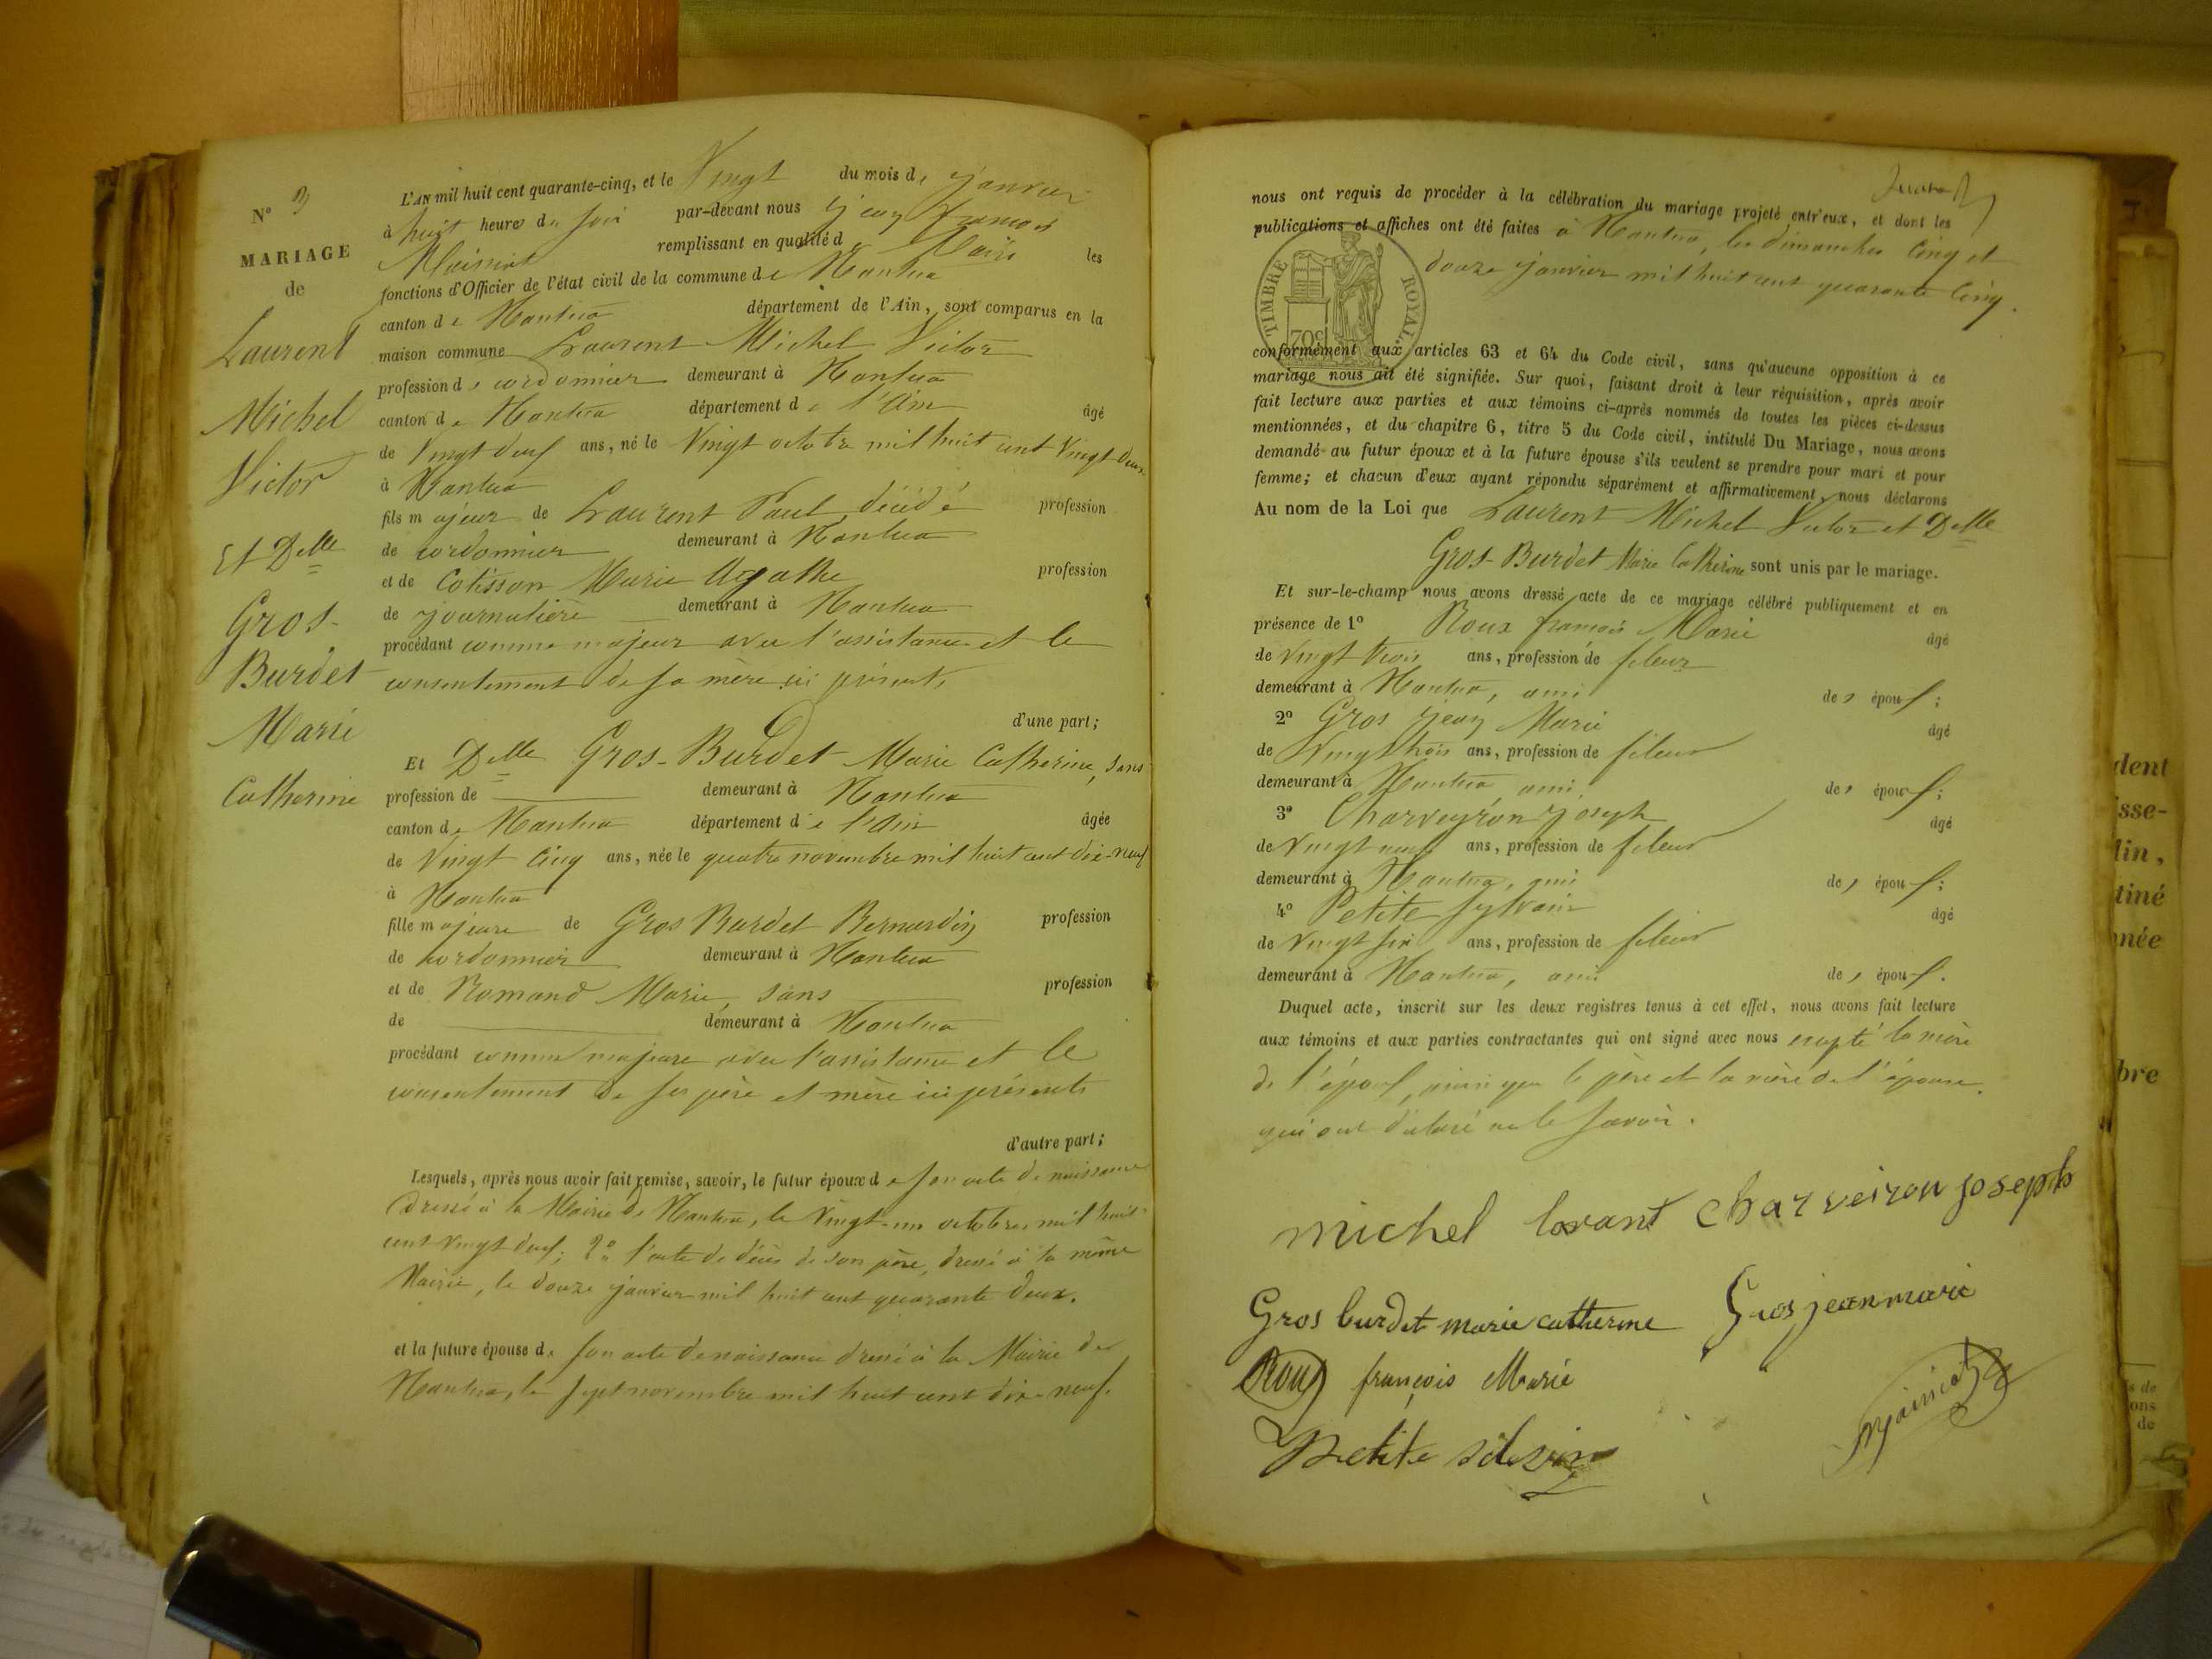 N° 3
MARIAGE
de
Laurent
Michel
Victor
Et Delle
Gros-
Burdet
Marie
Catherine
L'AN mil huit cent quarante-cinq, et le Vingt du mois de janvier
à huit heures du soir par-devant nous jean françois
Maissiat remplissant en qualité de Maire les
fonctions d'Officier de l'état civil de la commune de Nantua
canton de Nantua département de l'Ain, sont comparus en la
maison commune Laurent Michel Victor
profession de cordonnier demeurant à Nantua
canton de Nantua département de l'Ain âgé
de Vingt deux ans, né le Vingt octobre mil huit cent Vingt deux
à Nantua
fils majeur de Laurent Paul, décédé profession
de cordonnier demeurant à Nantua
et de Cotisson Marie Agathe profession
de journalière demeurant à Nantua
procédant comme majeur avec l'assistance et le
consentement de sa mère ici présente
d'une part;
Et Delle Gros-Burdet Marie Catherine, sans
profession de demeurant à Nantua
canton de Nantua département de l'Ain âgée
de Vingt cinq ans, née le quatre novembre mil huit cent dix-neuf
à Nantua
fille majeure de Gros Burdet Bernardin profession
de cordonnier demeurant à Nantua
et de Romand Marie, sans profession
de demeurant à Nantua
procédant comme majeure avec l'assistance et le
consentement de ses père et mère ici présents
d'autre part;
Lesquels, après nous avoir fait remise, savoir, le futur époux de son acte de naissance
dressé à la Mairie de Nantua, le Vingt-un octobre mil huit
cent vingt deux; 2° l'acte de décès de son père, dressé à la même
Mairie, le douze janvier mil huit cent quarante deux.
et la future épouse de son acte de naissance dressé à la Mairie de
Nantua, le sept novembre mil huit cent dix-neuf.
nous ont requis de procéder à la célébration du mariage projeté entr'eux, et dont les
publications et affiches ont été faites à Nantua, les dimanches cinq et
douze janvier mil huit cent quarante cinq.
TIMBRE ROYAL
70c
conformément aux articles 63 et 64 du Code civil, sans qu'aucune opposition à ce
mariage nous ait été signifiée. Sur quoi, faisant droit à leur réquisition, après avoir
fait lecture aux parties et aux témoins ci-après nommés de toutes les pièces ci-dessus
mentionnées, et du chapitre 6, titre 5 du Code civil, intitulé Du Mariage, nous avons
demandé au futur époux et à la future épouse s'ils veulent se prendre pour mari et pour
femme; et chacun d'eux ayant répondu séparément et affirmativement, nous déclarons
Au nom de la Loi que Laurent Michel Victor et Delle
Gros-Burdet Marie Catherine sont unis par le mariage.
Et sur-le-champ nous avons dressé acte de ce mariage célébré publiquement et en
présence de 1° Roux françois Marie âgé
de Vingt trois ans, profession de fileur
demeurant à Nantua, ami des époux;
2° Gros jean Marie âgé
de Vingt trois ans, profession de fileur
demeurant à Nantua, ami des époux;
3° Charveyron joseph âgé
de Vingt neuf ans, profession de fileur
demeurant à Nantua, ami des époux;
4° Petite Sylvain âgé
de Vingt six ans, profession de fileur
demeurant à Nantua, ami des époux.
Duquel acte, inscrit sur les deux registres tenus à cet effet, nous avons fait lecture
aux témoins et aux parties contractantes qui ont signé avec nous excepté la mère
de l'époux, ainsi que le père et la mère de l'épouse
qui ont déclaré ne le savoir.
michel lorant charveiron joseph
Gros burdet marie catherine Gros jean marie
Roux françois Marie
Petite silvain
dent
isse-
lin,
tiné
née
bre
s de
ons
de